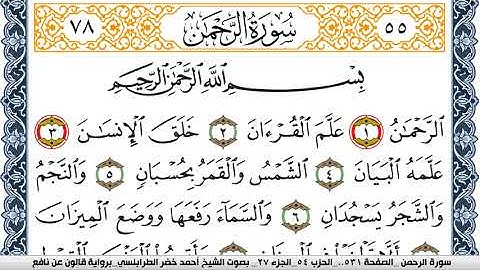 ٧٨ سُورَةُ الرَّحْمَٰن ٥٥
بِسْمِ اللَّهِ الرَّحْمَٰنِ الرَّحِيمِ
الرَّحْمَٰنُ ١ عَلَّمَ الْقُرْءَانَ ٢ خَلَقَ الْإِنسَٰنَ ٣
عَلَّمَهُ الْبَيَانَ ٤ الشَّمْسُ وَالْقَمَرُ بِحُسْبَانٍ ٥ وَالنَّجْمُ
وَالشَّجَرُ يَسْجُدَانِ ٦ وَالسَّمَآءَ رَفَعَهَا وَوَضَعَ الْمِيزَانَ
سورة الرحمن _ الصفحة ٥٣١_ الحزب ٥٤_ الجزء ٢٧_ بصوت الشيخ أحمد خضر الطرابلسي_ برواية قالون عن نافع